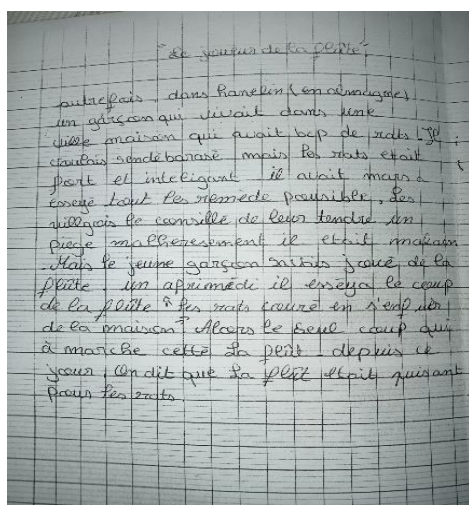 "Le joueur de la flûte"
autrefois, dans hanelin (en almagne)
un garçon qui vivait dans une
maison qui avait bcp de rats
voulais sendébarasé mais les rats etait
fort et inteligant il avait
esseyé tout les remède poussible, des
villgois le consille de leur tendre un
piege malheresement il etait
Mais le jeune garçon joué de la
flûte un aprimédi il esseya le coup
de la flûte "les rats couré en s'enf
de la maison" Alcors le seul coup qui
à marche cette la flût depuis ce
jour, on dit que la flût etait puisant
pour les rats.